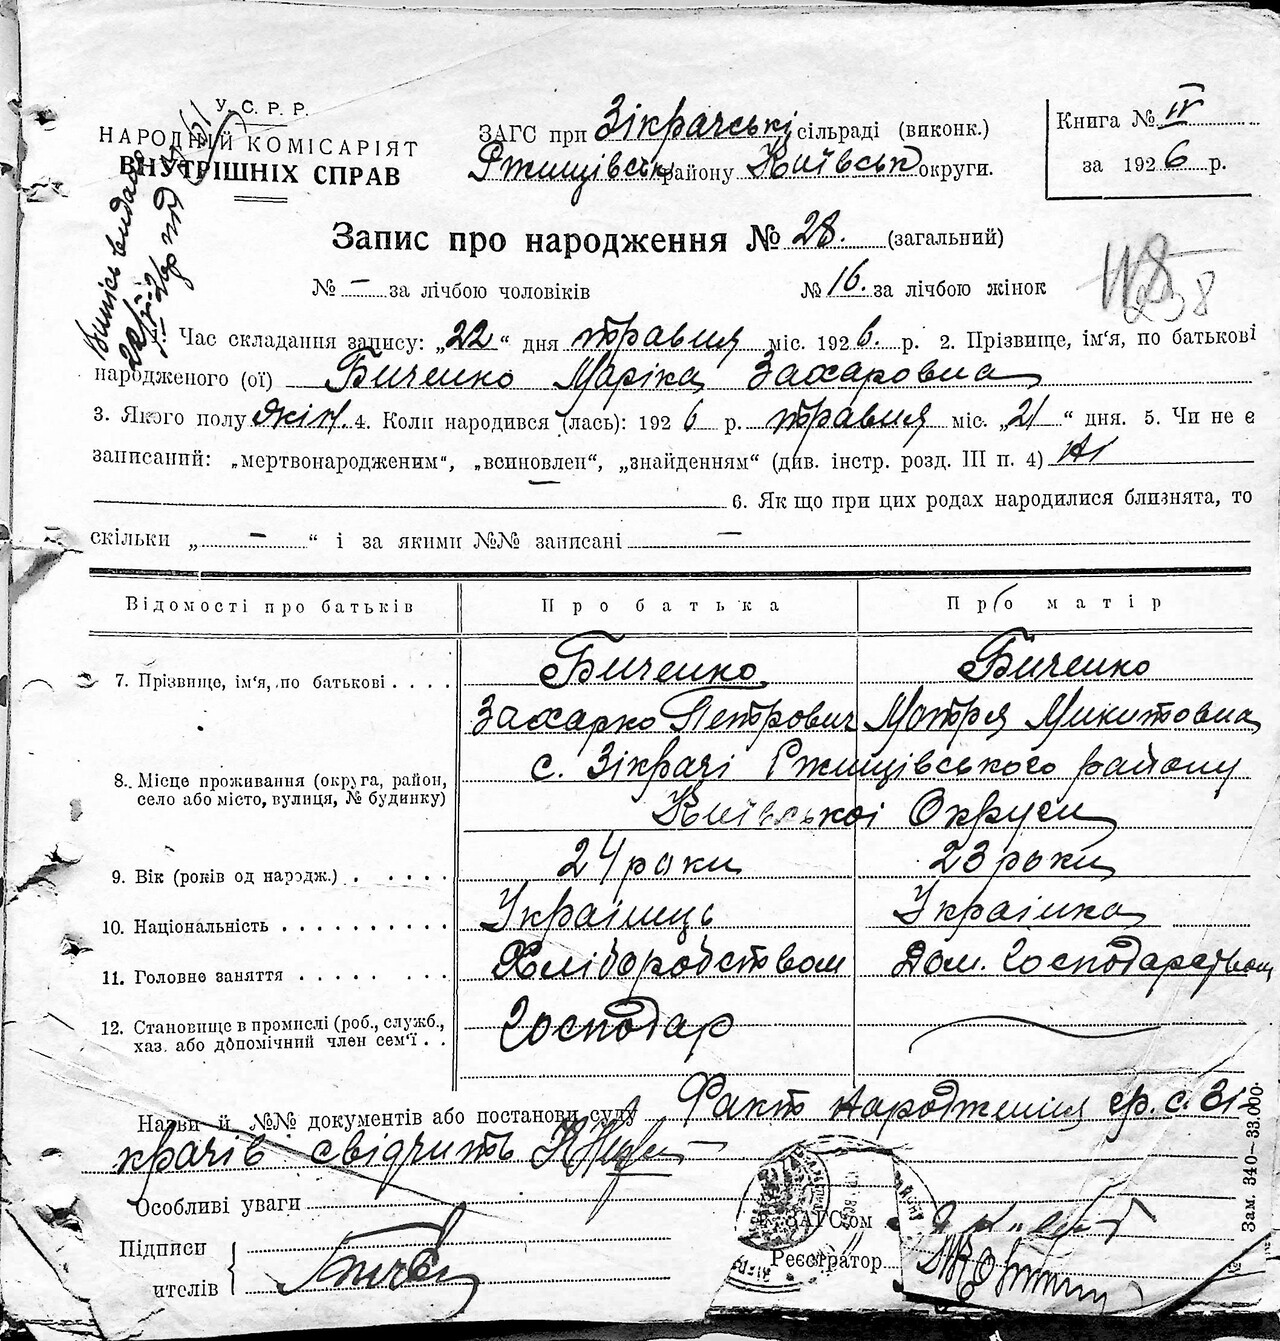 У. С. Р. Р.
НАРОДНІЙ КОМІСАРІЯТ
ВНУТРІШНІХ СПРАВ
ЗАГС при Зікрачські сільраді (виконк.)
Ржищівськ району Київськ округи.
Книга № IV
за 1926 р.
Запис про народження № 28. (загальний)
№ – за лічбою чоловіків № 16. за лічбою жінок
Час складання запису: „22“ дня травня міс. 1926. р. 2. Прізвище, ім'я, по батькові
народженого (ої) Биченко Маріка Захаровна
3. Якого полу жін. 4. Коли народився (лась): 1926 р. травня міс. „21“ дня. 5. Чи не є
записаний: „мертвонародженим“, „всиновлен“, „знайденням“ (див. інстр. розд. III п. 4) ні
6. Як що при цих родах народилися близнята, то
скільки „ – “ і за якими №№ записані –
Відомості про батьків Про батька Про матір
7. Прізвище, ім'я, по батькові . . . . Биченко Биченко
Захарко Петрович Мотря Микитовна
8. Місце проживання (округа, район, село або місто, вулиця, № будинку) с. Зікрачі Ржищівського району
Київської Округи
9. Вік (років од народж.) . . . . . 24 роки 23 роки
10. Національність . . . . . . . . . . Українець Українка
11. Головне заняття . . . . . . . . Хліборобством Дом. Господарством
12. Становище в промислі (роб., служб., хаз. або допомічний член сем'ї . . Господар
Назви й №№ документів або постанови суду Факт народження гр. с. Зі-
крачів свідчить
Особливі уваги
Підписи
ителів
ЗАГС'ом
Реєстратор
Зам. 340–33.000